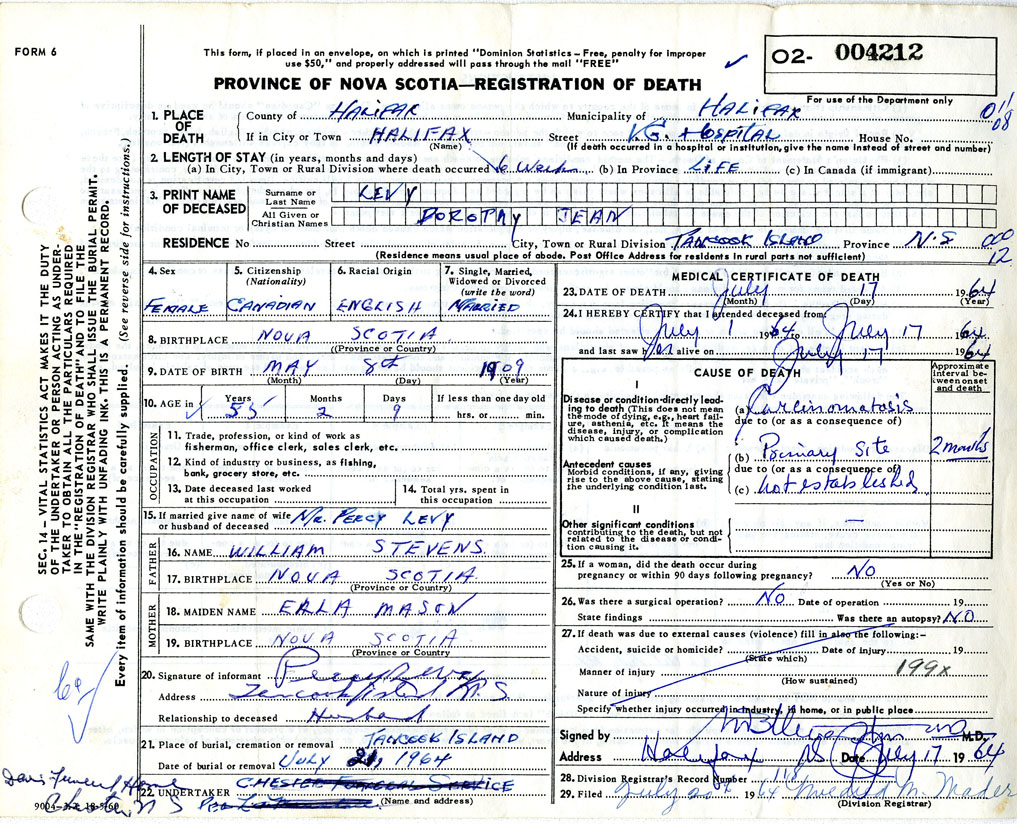 FORM 6
This form, if placed in an envelope, on which is printed "Dominion Statistics – Free, penalty for improper
use $50," and properly addressed will pass through the mail "FREE"
✓
O2- 004212
PROVINCE OF NOVA SCOTIA—REGISTRATION OF DEATH
For use of the Department only
011
08
1. PLACE OF DEATH
County of HALIFAX Municipality of HALIFAX
If in City or Town HALIFAX Street V.G. HOSPITAL House No.
(Name) (If death occurred in a hospital or institution, give the name instead of street and number)
2. LENGTH OF STAY (in years, months and days)
(a) In City, Town or Rural Division where death occurred 6 Weeks (b) In Province LIFE (c) In Canada (if immigrant)
3. PRINT NAME OF DECEASED
Surname or Last Name LEVY
All Given or Christian Names DOROTHY JEAN
RESIDENCE No Street City, Town or Rural Division TANCOOK ISLAND Province N.S
(Residence means usual place of abode. Post Office Address for residents in rural parts not sufficient)
000
12
4. Sex
FEMALE
5. Citizenship
(Nationality)
CANADIAN
6. Racial Origin
ENGLISH
7. Single, Married, Widowed or Divorced
(write the word)
MARRIED
8. BIRTHPLACE NOVA SCOTIA
(Province or Country)
9. DATE OF BIRTH MAY 8th 1909
(Month) (Day) (Year)
10. AGE in Years Months Days If less than one day old
55 2 9 hrs. or min.
OCCUPATION
11. Trade, profession, or kind of work as
fisherman, office clerk, sales clerk, etc.
12. Kind of industry or business, as fishing,
bank, grocery store, etc.
13. Date deceased last worked
at this occupation
14. Total yrs. spent in
this occupation
15. If married give name of wife
or husband of deceased Mr. PERCY LEVY
FATHER
16. NAME WILLIAM STEVENS
17. BIRTHPLACE NOVA SCOTIA
(Province or Country)
MOTHER
18. MAIDEN NAME ERLA MASON
19. BIRTHPLACE NOVA SCOTIA
(Province or Country)
20. Signature of informant Percy Levy
Address Tancook Island N.S.
Relationship to deceased Husband
21. Place of burial, cremation or removal TANCOOK ISLAND
Date of burial or removal JULY 21, 1964
22. UNDERTAKER CHESTER FUNERAL SERVICE
(Name and address)
Davis Funeral Home
Chester N S
MEDICAL CERTIFICATE OF DEATH
23. DATE OF DEATH July 17 1964
(Month) (Day) (Year)
24. I HEREBY CERTIFY that I attended deceased from:
July 1 1964 to July 17 1964
and last saw her alive on July 17 1964
CAUSE OF DEATH
Approximate interval between onset and death
I
Disease or condition directly leading to death (This does not mean the mode of dying, e.g., heart failure, asthenia, etc. It means the disease, injury, or complication which caused death.)
(a) Carcinomatosis
due to (or as a consequence of)
Antecedent causes
Morbid conditions, if any, giving rise to the above cause, stating the underlying condition last.
(b) Primary Site 2 months
due to (or as a consequence of)
(c) not established
II
Other significant conditions
contributing to the death, but not related to the disease or condition causing it.
—
25. If a woman, did the death occur during
pregnancy or within 90 days following pregnancy? NO
(Yes or No)
26. Was there a surgical operation? NO Date of operation 19
State findings Was there an autopsy? NO
27. If death was due to external causes (violence) fill in also the following:–
Accident, suicide or homicide? Date of injury 19
(State which)
Manner of injury 199X
(How sustained)
Nature of injury
Specify whether injury occurred in industry, in home, or in public place
Signed by M.D.
Address Halifax NS Date July 17 1964
28. Division Registrar's Record Number
29. Filed July 20th 1964 Mildred M. Mader
(Division Registrar)
9004-
SEC. 14 – VITAL STATISTICS ACT MAKES IT THE DUTY
OF THE UNDERTAKER OR PERSON ACTING AS UNDER-
TAKER TO OBTAIN ALL THE PARTICULARS REQUIRED
IN THE "REGISTRATION OF DEATH" AND TO FILE THE
SAME WITH THE DIVISION REGISTRAR WHO SHALL ISSUE THE BURIAL PERMIT.
WRITE PLAINLY WITH UNFADING INK. THIS IS A PERMANENT RECORD.
Every item of information should be carefully supplied. (See reverse side for instructions.)